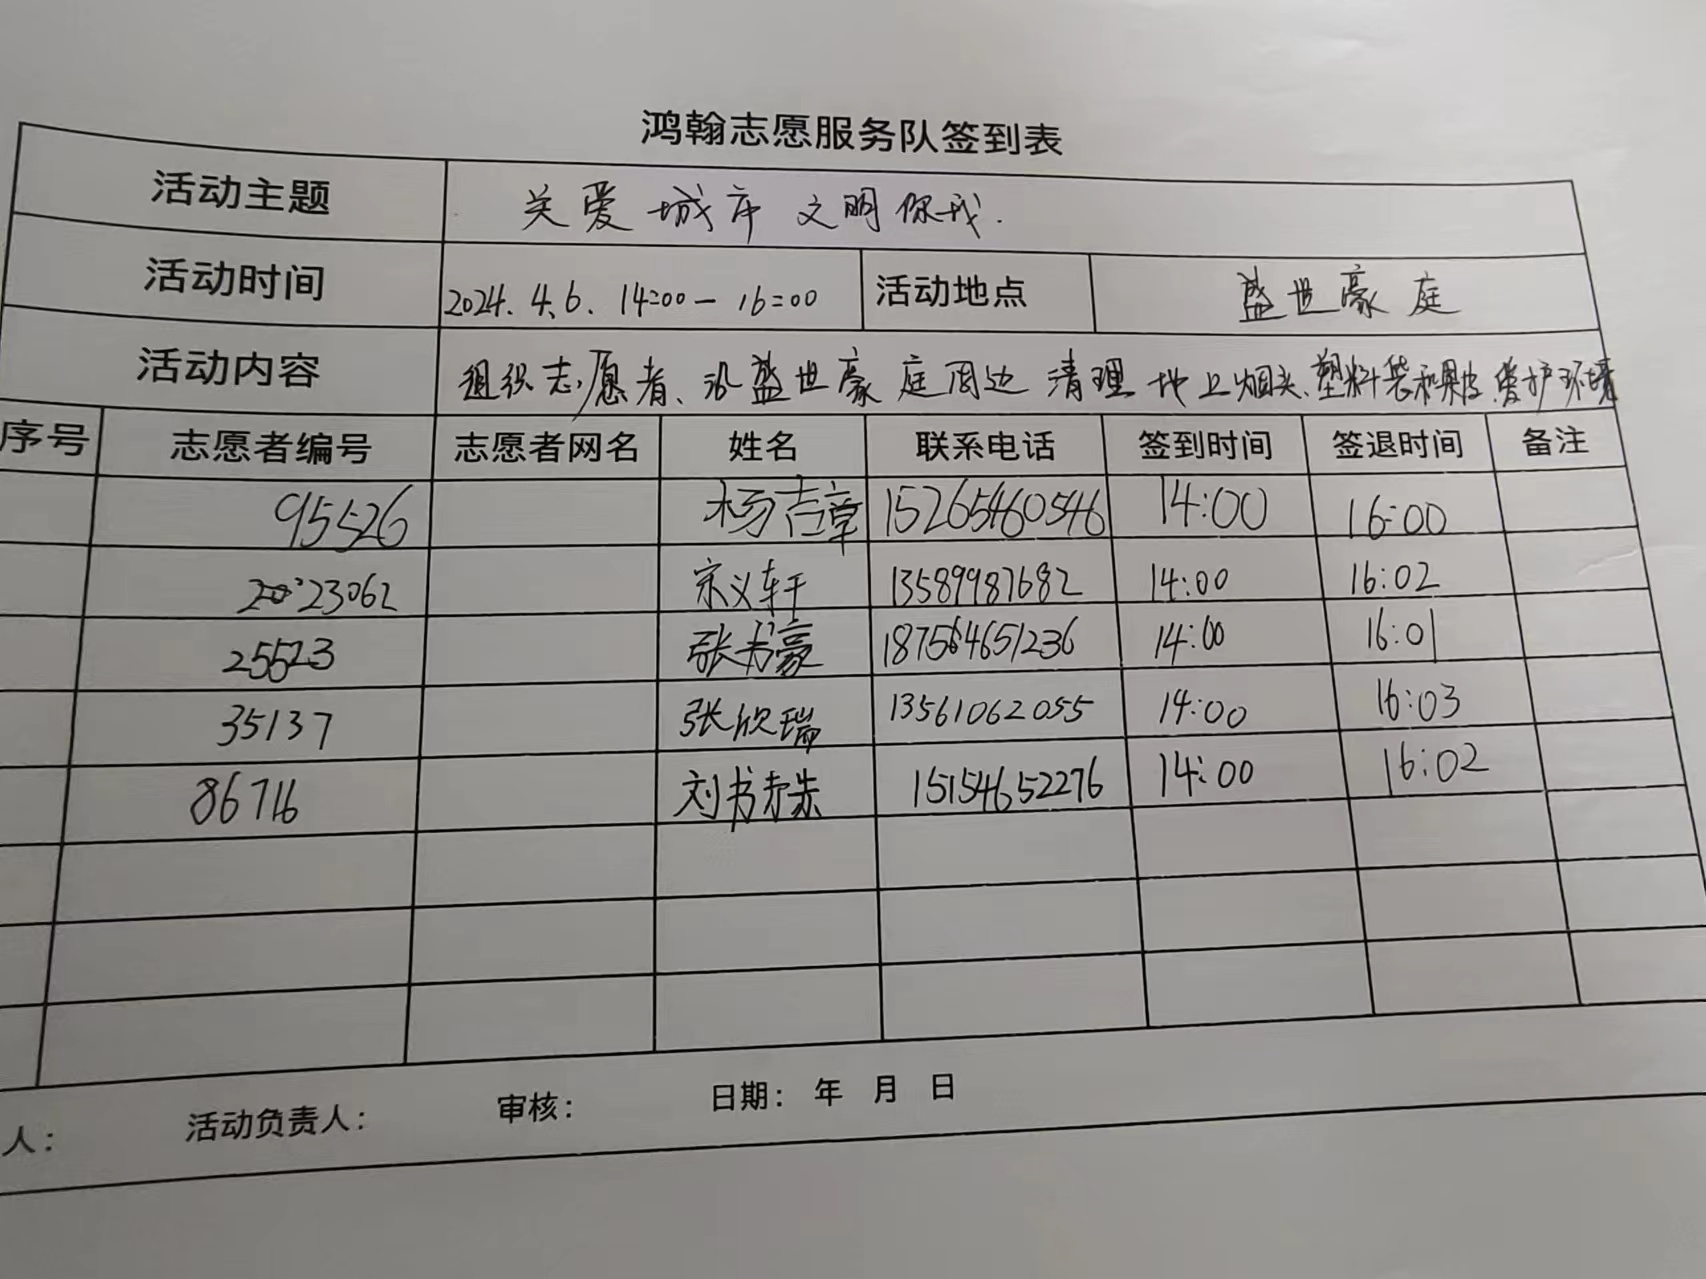 鸿翰志愿服务队签到表
活动主题 关爱城市 文明你我.
活动时间 2024.4.6. 14:00-16:00 活动地点 盛世豪庭
活动内容 组织志愿者、沿盛世豪庭周边清理地上烟头、塑料袋和果皮、爱护环境
序号 志愿者编号 志愿者网名 姓名 联系电话 签到时间 签退时间 备注
95526 杨志章 15265460546 14:00 16:00
23062 宗义轩 13589987682 14:00 16:02
25523 张书豪 187564651236 14:00 16:01
35137 张欣瑞 13561062055 14:00 16:03
86716 刘书 15154652276 14:00 16:02
人: 活动负责人: 审核: 日期: 年 月 日